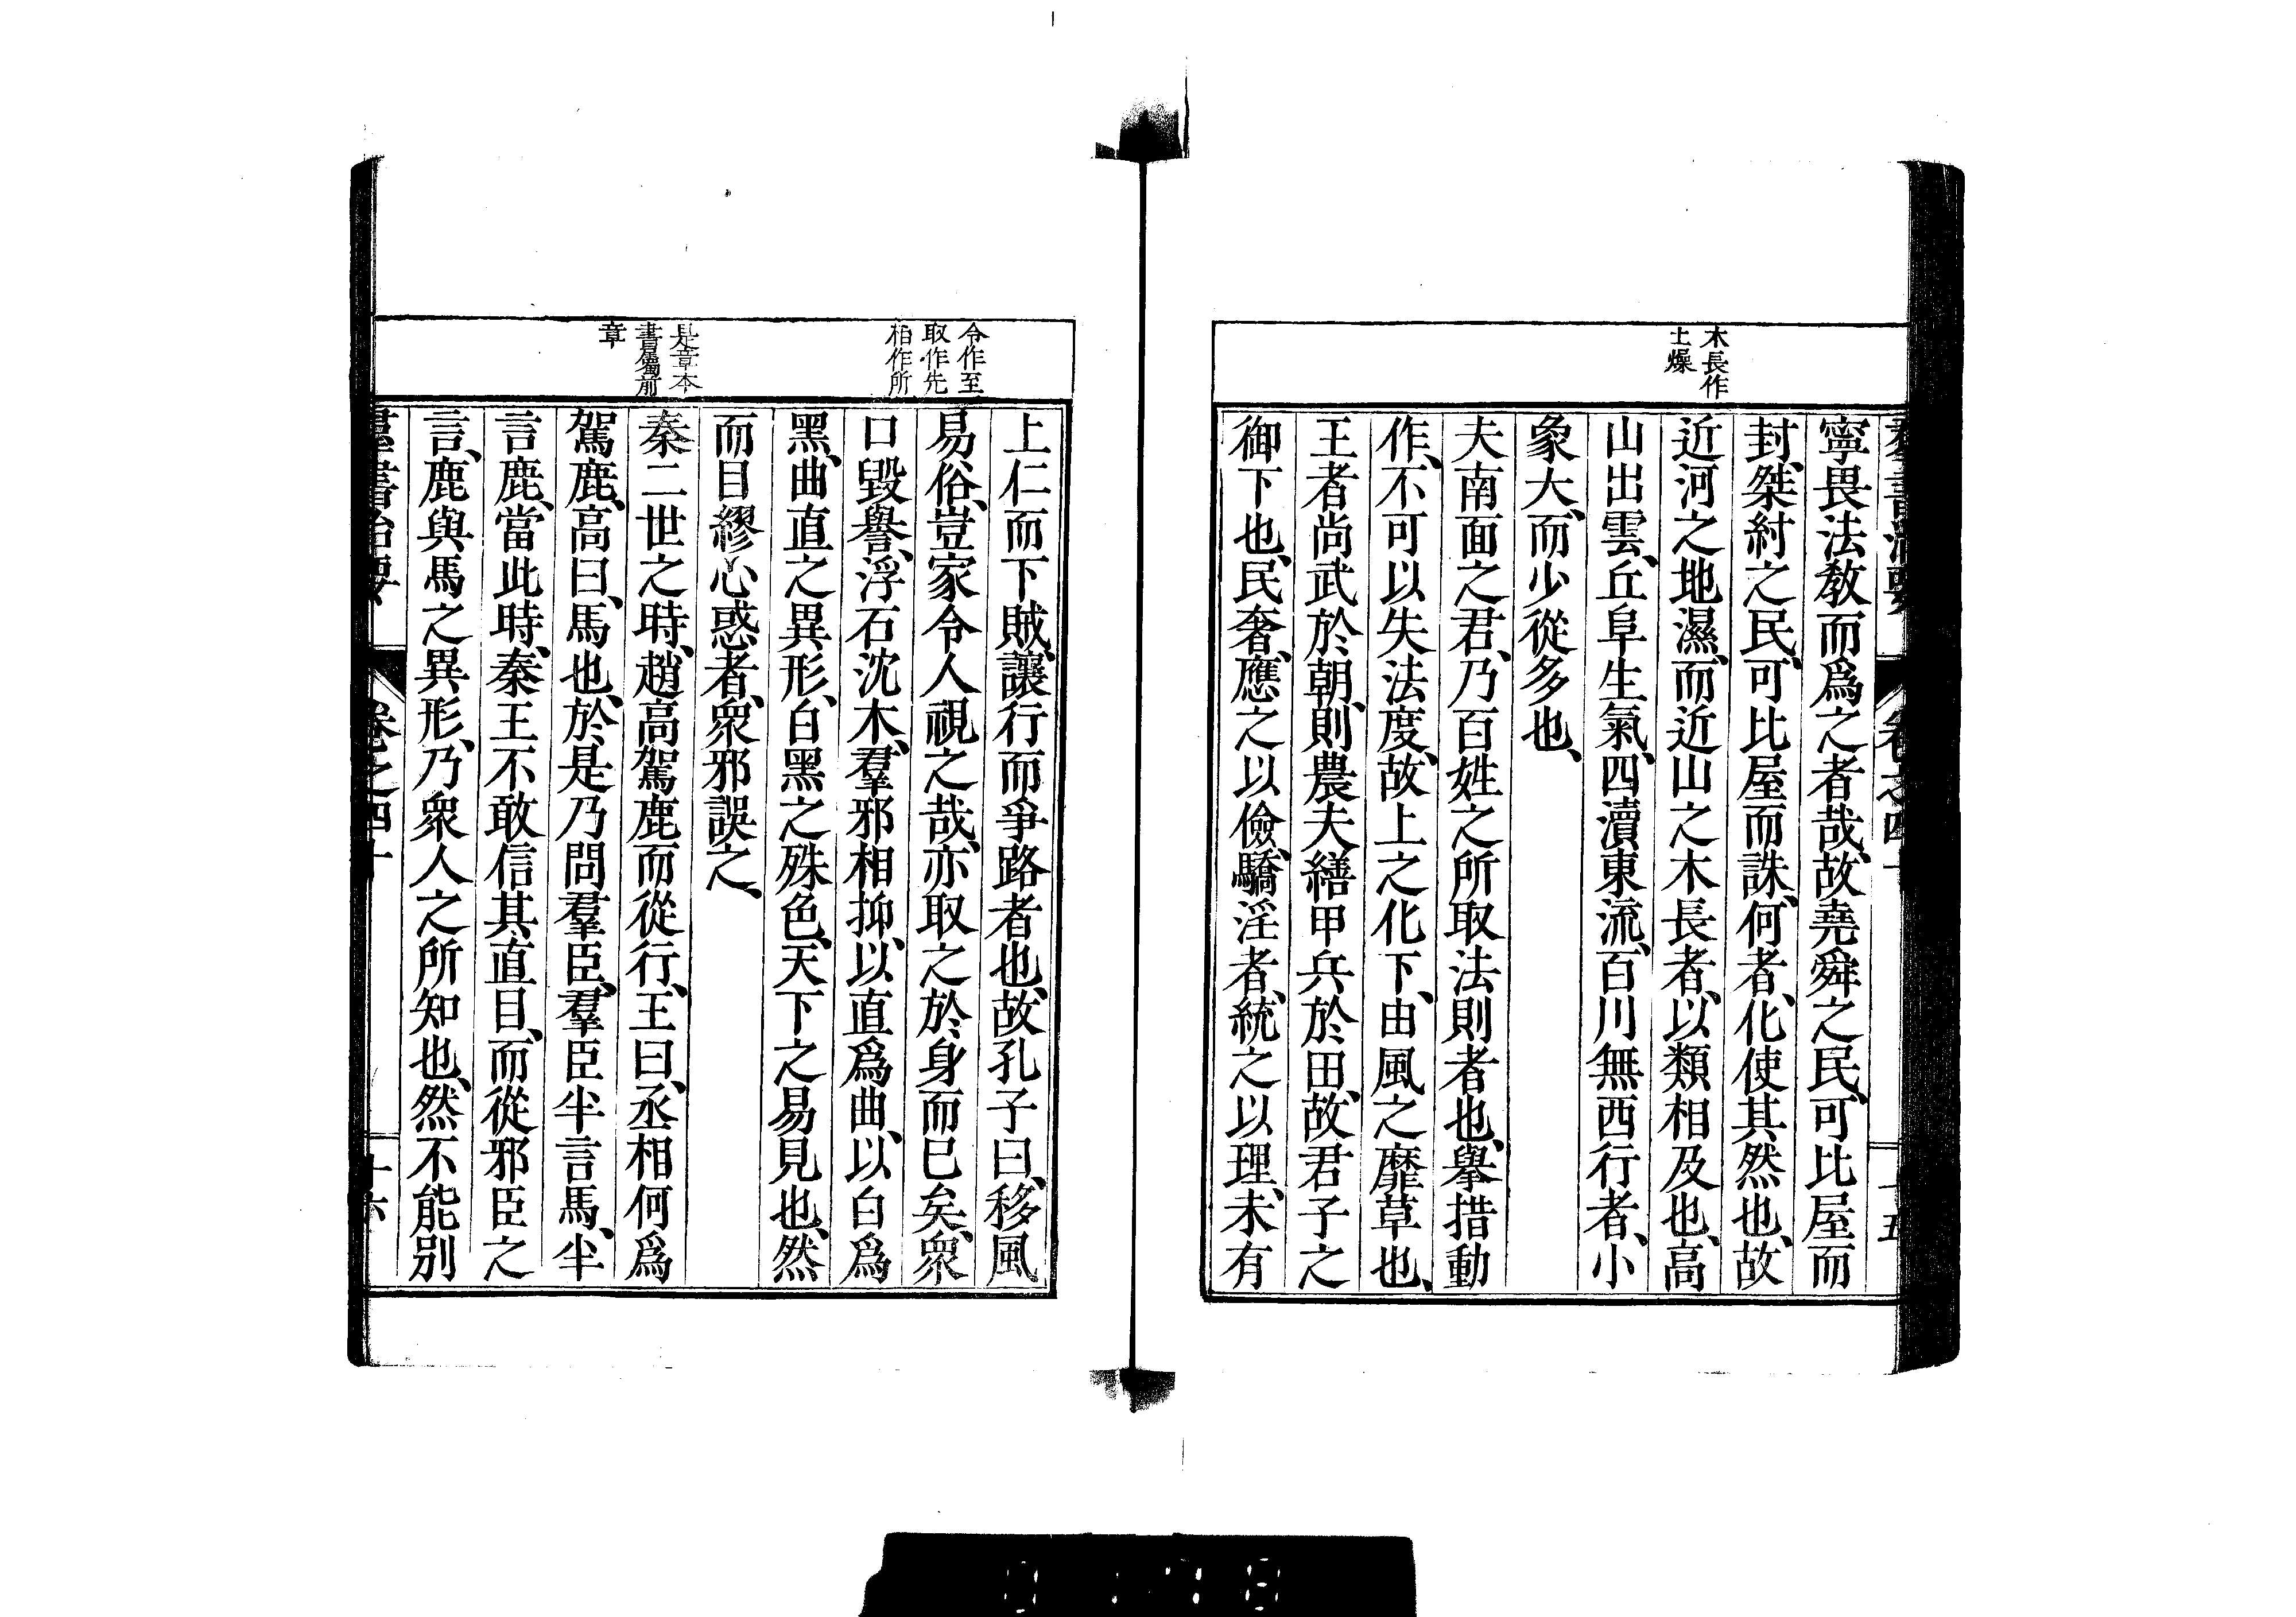 羣書治要 卷之四十 十五
木長作
土燥
寧畏法敎而爲之者哉、故堯舜之民、可比屋而
封、桀紂之民、可比屋而誅、何者、化使其然也、故
近河之地濕、而近山之木長者、以類相及也、高
山出雲、丘阜生氣、四瀆東流、百川無西行者、小
象大、而少從多也、
夫南面之君、乃百姓之所取法則者也、擧措動
作、不可以失法度、故上之化下、由風之靡草也、
王者尚武於朝、則農夫繕甲兵於田、故君子之
御下也、民奢、應之以儉、驕淫者、統之以理、未有
令作至
取作先
相作所
上仁而下賊、讓行而爭路者也、故孔子曰、移風
易俗、豈家令人視之哉、亦取之於身而已矣、衆
口毀譽、浮石沈木、羣邪相抑、以直爲曲、以白爲
黑、曲直之異形、白黑之殊色、天下之易見也、然
而目繆心惑者、衆邪誤之、
是章本
書屬前
章
秦二世之時、趙高駕鹿而從行、王曰、丞相何爲
駕鹿、高曰、馬也、於是乃問羣臣、羣臣半言馬、半
言鹿、當此時、秦王不敢信其直目、而從邪臣之
言、鹿與馬之異形、乃衆人之所知也、然不能別
羣書治要 卷之四十 十六